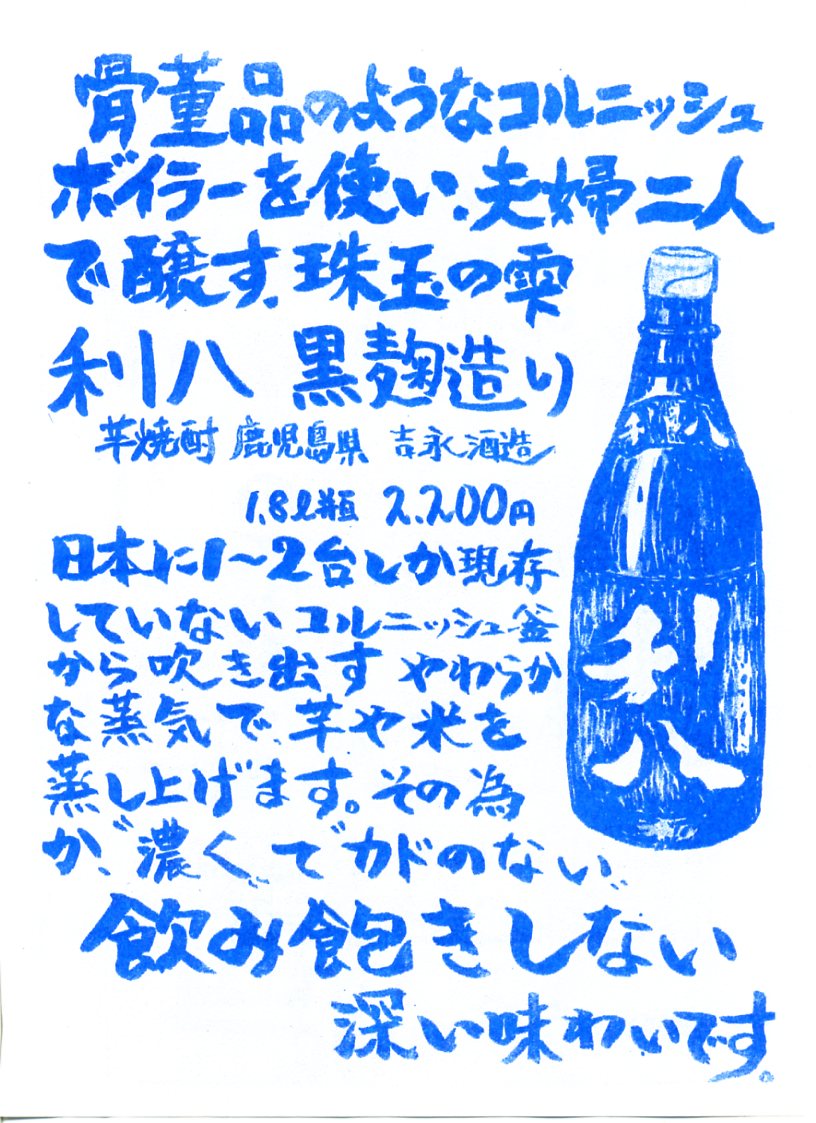 骨董品のようなコルニッシュ
ボイラーを使い、夫婦二人
で醸す、珠玉の雫
利八 黒麹造り
芋焼酎 鹿児島県 吉永酒造
1.8ℓ瓶 2.200円
日本に1〜2台しか現存
していないコルニッシュ釜
から吹き出すやわらか
な蒸気で、芋や米を
蒸し上げます。その為
か、"濃く"で"カドのない"
飲み飽きしない
深い味わいです。
利八
利八